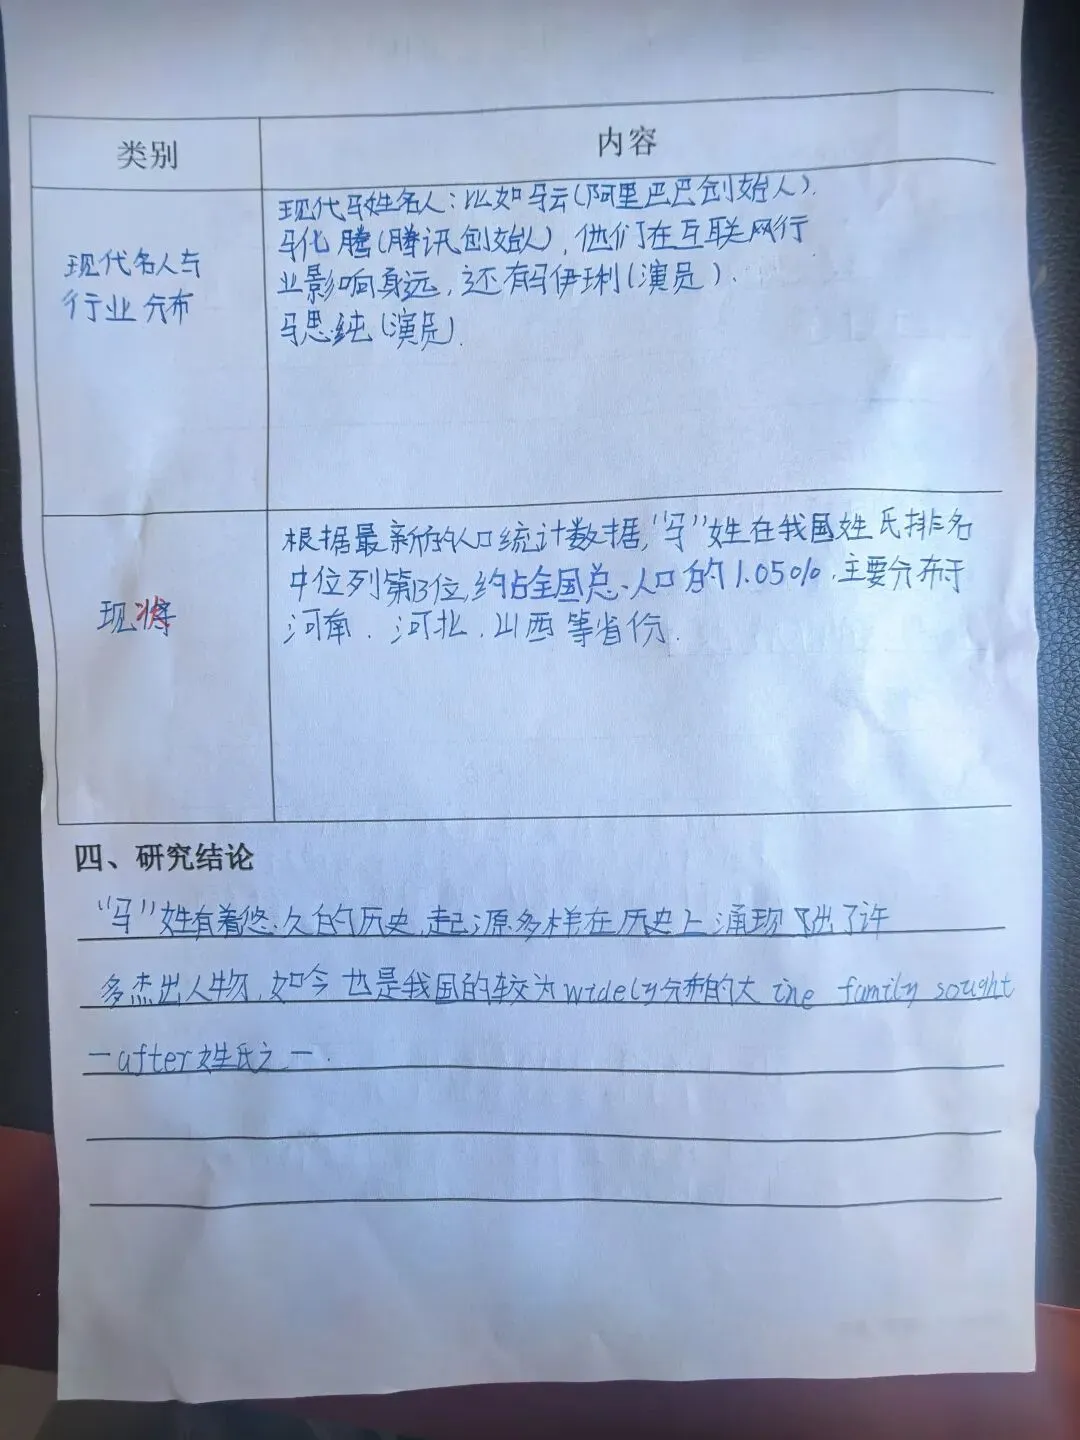 类别
内容
现代名人与
行业分布
现代马姓名人:比如马云(阿里巴巴创始人).
马化腾(腾讯创始人),他们在互联网行
业影响身远,还有马伊琍(演员).
马思纯(演员).
现
根据最新的人口统计数据,“马”姓在我国姓氏排名
中位列第13位,约占全国总人口的1.05%,主要分布于
河南.河北.山西等省份.
四、研究结论
“马”姓有着悠久的历史,起源多样在历史上涌现出了许
多杰出人物,如今也是我国的较为widely分布的大 ine family sought
-after姓氏之一.